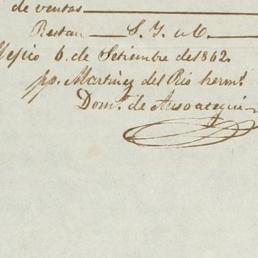 de ventas
Restan S. Y. u O.
Mejico 6. de Setiembre de 1862.
pp. Martinez del Rio herms.
Domo. de Ansoategui